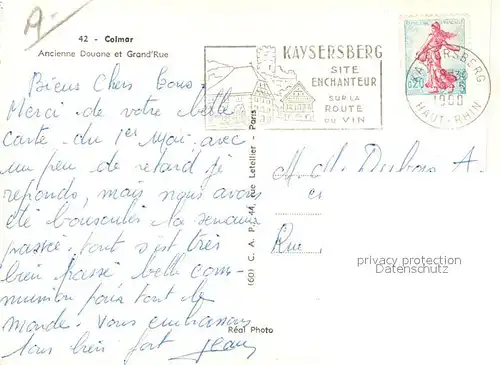 A-
42 - Colmar
Ancienne Douane et Grand'Rue
Bieus Chers tous.
Merci de votre belle
carte du 1er Mai, avec
un peu de retard je
reponds, mais nous avons
été bousculés la semaine
passée. tout s'est très
bien passé belle com-
munion pour tout le
monde. Vous embrassons
tous bien fort Jean
KAYSERSBERG
SITE
ENCHANTEUR
SUR LA
ROUTE
DU VIN
KAYSERSBERG
1960
HAUT-RHIN
0,20
(60) C. A. P. - 44, rue Letellier - Paris
Réal Photo
M. M. Dubois A.
Rue
privacy protection
Datenschutz